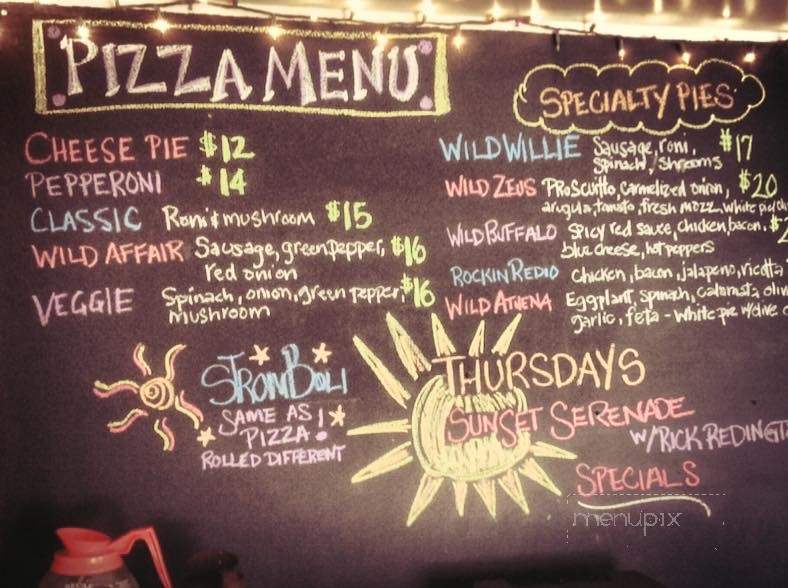 PIZZA MENU
CHEESE PIE $12
PEPPERONI $14
CLASSIC Roni & mushroom $15
WILD AFFAIR Sausage, green pepper, $16
red onion
VEGGIE Spinach, onion, green pepper, $16
mushroom
SPECIALTY PIES
WILD WILLIE Sausage, roni, $17
Spinach, shrooms
WILD ZEUS PROSCUITTO, carmelized onion, $20
arugula, tomato, fresh mozz, white pie
WILD BUFFALO spicy red sauce, chicken, bacon, $2
blue cheese, hot peppers
ROCKIN REDIO chicken, bacon, jalapeno, ricotta
WILD ATHENA Eggplant, spinach, calamata
garlic, feta - white pie w/olive
STROMBOLI
SAME AS
PIZZA!
ROLLED DIFFERENT
THURSDAYS
SUNSET SERENADE
W/RICK REDINGT
SPECIALS
menupix